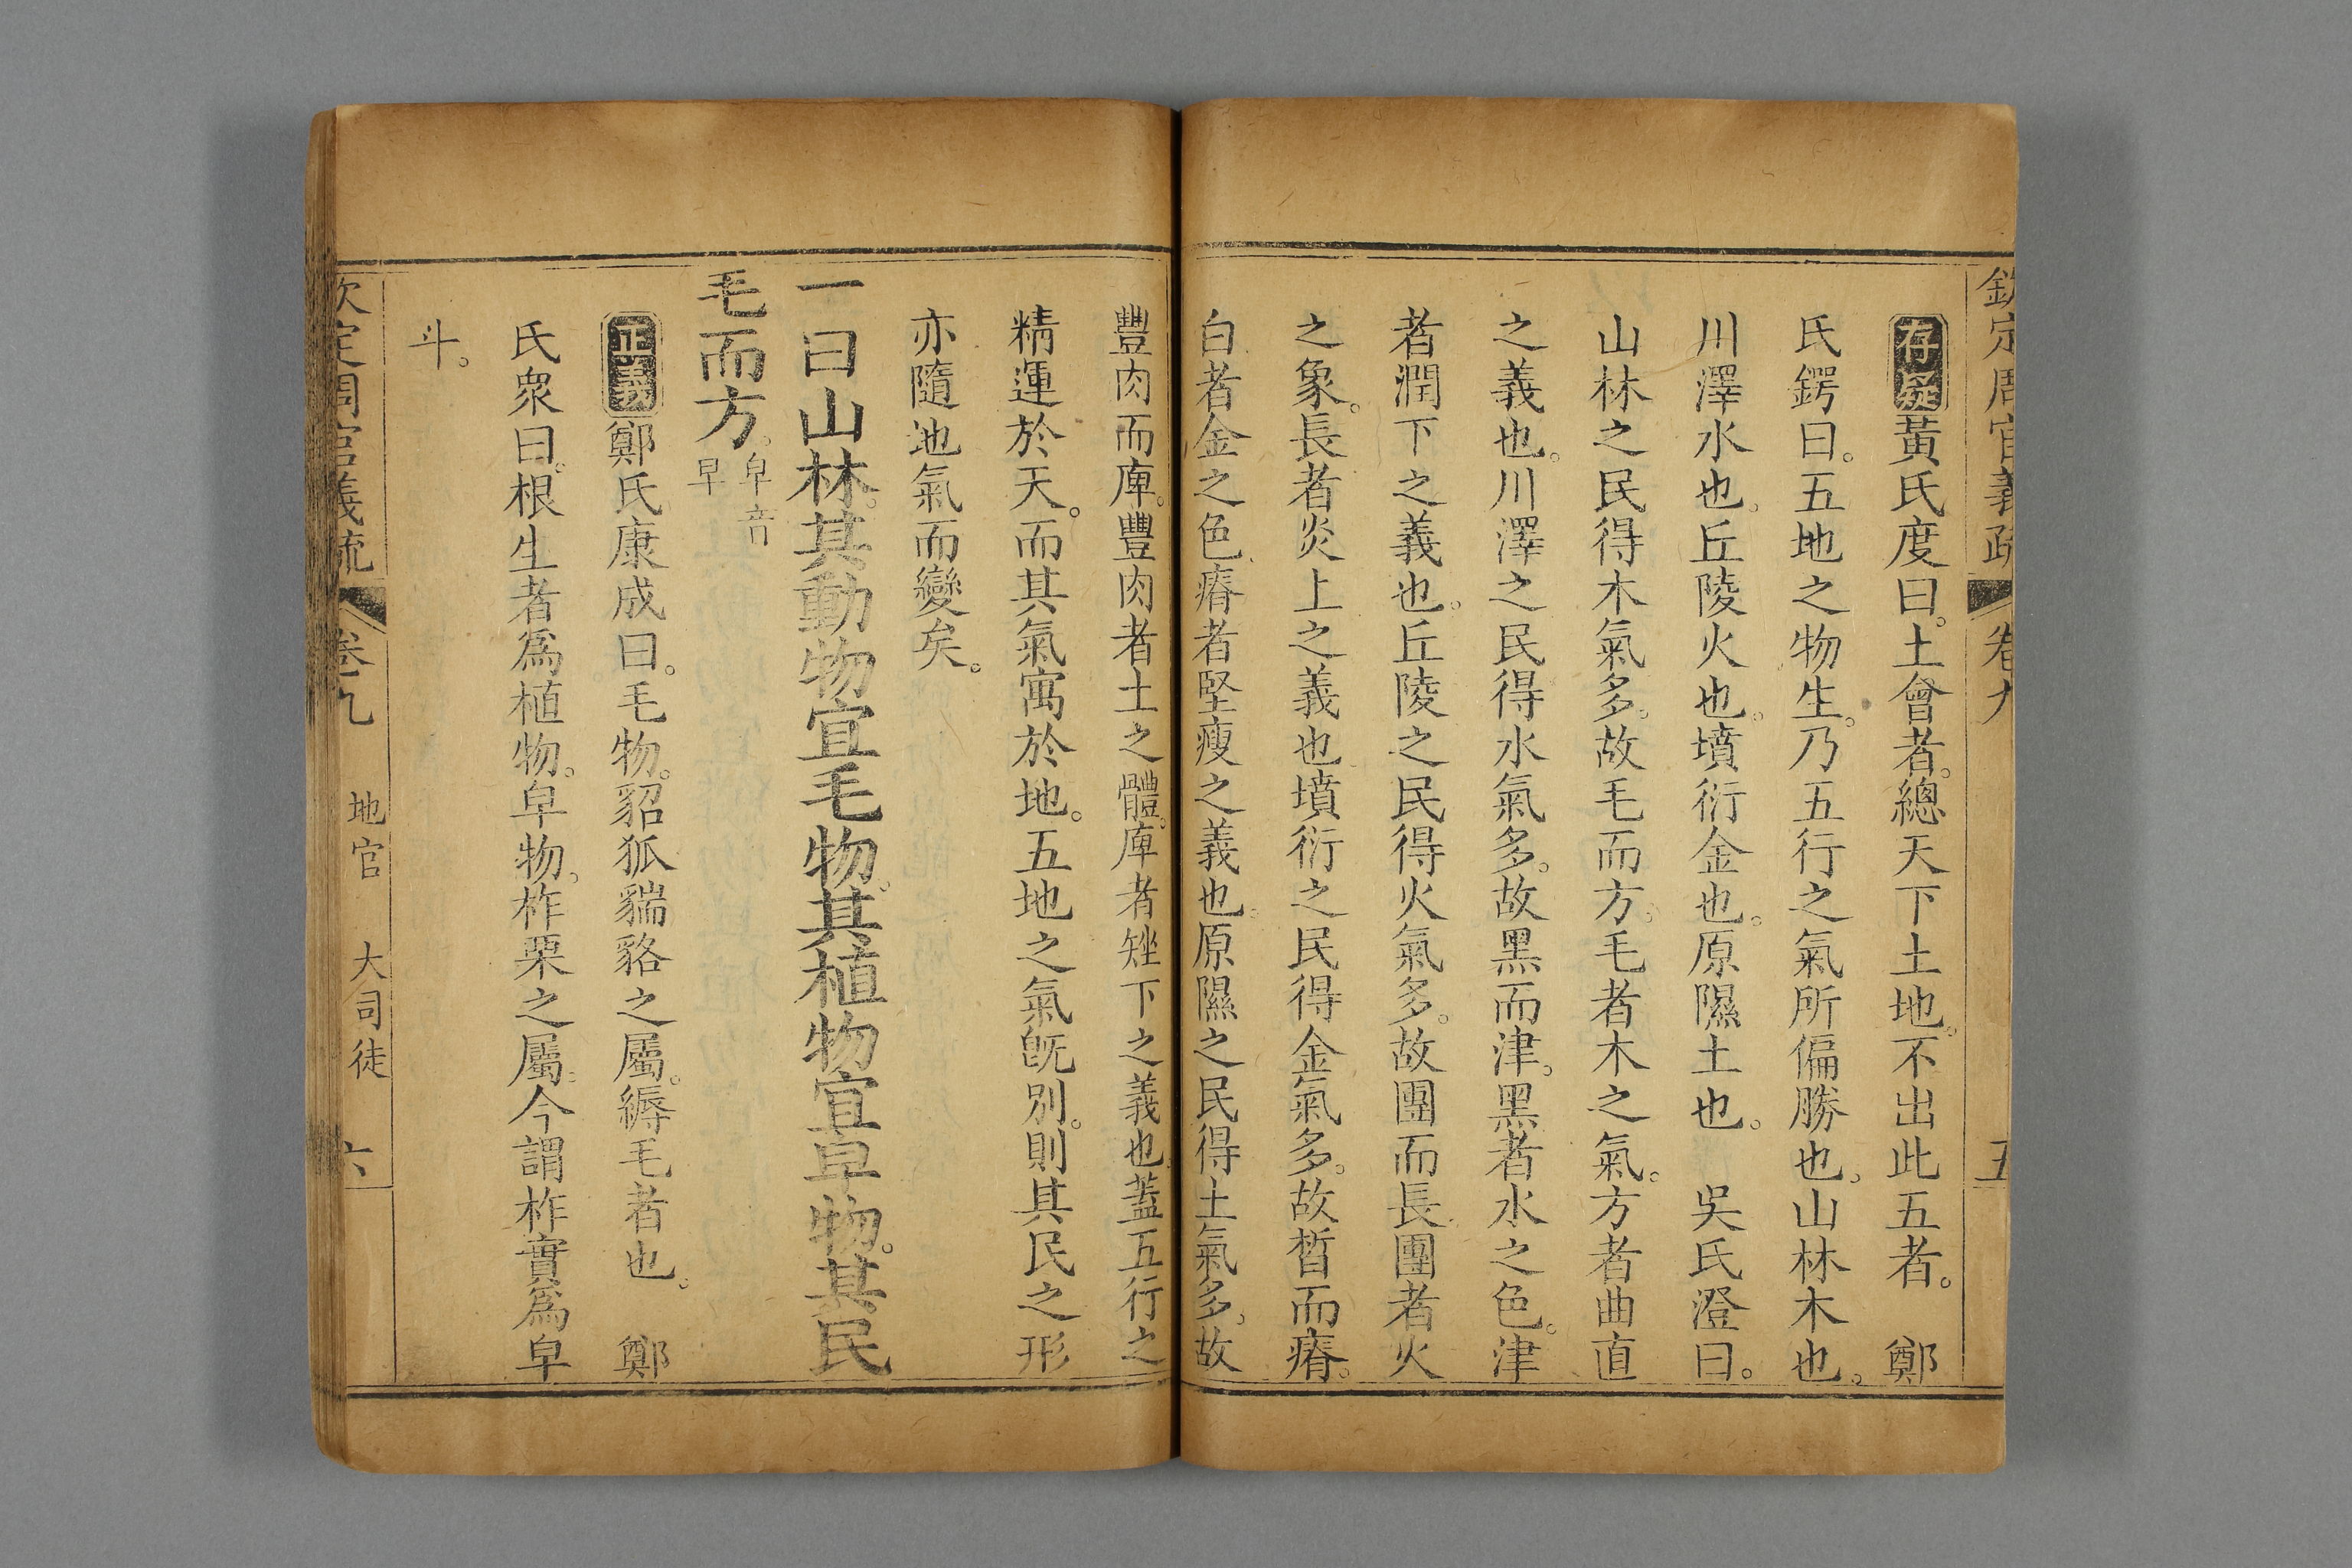 欽定周官義疏 卷九 五
存疑黃氏度曰。土會者。總天下土地。不出此五者。 鄭
氏鍔曰。五地之物生。乃五行之氣所偏勝也。山林木也。
川澤水也。丘陵火也。墳衍金也。原隰土也。 吳氏澄曰。
山林之民得木氣多。故毛而方。毛者木之氣。方者曲直
之義也。川澤之民得水氣多。故黑而津。黑者水之色。津
者潤下之義也。丘陵之民得火氣多。故團而長。團者火
之象。長者炎上之義也墳衍之民得金氣多。故皙而瘠。
白者金之色。瘠者堅瘦之義也。原隰之民得土氣多。故
豐肉而庳。豐肉者土之體。庳者矬下之義也。蓋五行之
精運於天。而其氣寓於地。五地之氣旣別。則其民之形
亦隨地氣而變矣。
一曰山林。其動物宜毛物。其植物宜皁物。其民
毛而方。皁音
早
正義鄭氏康成曰。毛物。貂狐貒貉之屬。縟毛者也。 鄭
氏衆曰。根生者爲植物。皁物。柞栗之屬。今謂柞實爲皁
斗。
欽定周官義疏 卷九 地官 大司徒 六